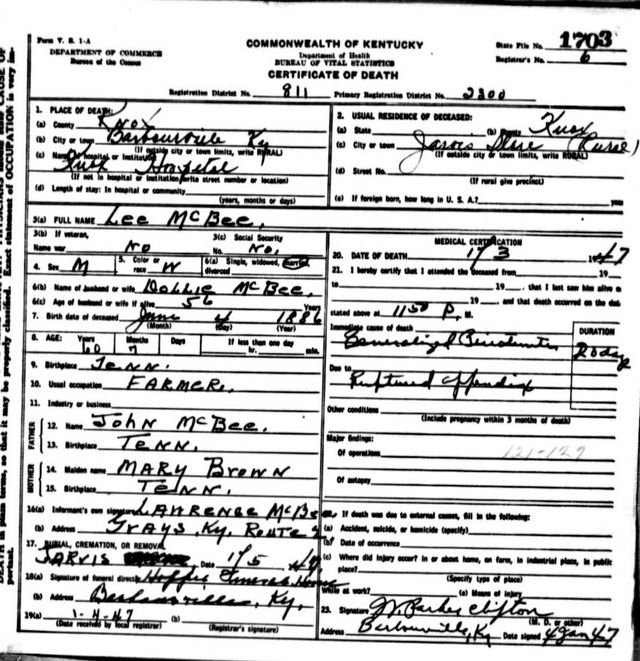 Form V. S. 1-A
DEPARTMENT OF COMMERCE
Bureau of the Census
COMMONWEALTH OF KENTUCKY
Department of Health
BUREAU OF VITAL STATISTICS
CERTIFICATE OF DEATH
State File No. 1703
Registrar's No. 6
Registration District No. 811 Primary Registration District No. 2200
1. PLACE OF DEATH:
(a) County Knox
(b) City or town Barbourville Ky
(If outside city or town limits, write RURAL)
(c) Name of hospital or institution:
Hospital
(If not in hospital or institution write street number or location)
(d) Length of stay: In hospital or community
(years, months or days)
2. USUAL RESIDENCE OF DECEASED:
(a) State (b) County Knox
(c) City or town Jarvis Store (Rural)
(If outside city or town limits, write RURAL)
(d) Street No.
(If rural give precinct)
(e) If foreign born, how long in U. S. A.? years
3(a) FULL NAME Lee McBee,
3(b) If veteran, 3(c) Social Security
Name war No No. No,
4. Sex M 5. Color or race W 6(a) Single, widowed, married, divorced
6(b) Name of husband or wife Dobbie McBee,
6(c) Age of husband or wife if alive 56 Years
7. Birth date of deceased June 4 1886
(Month) (Day) (Year)
8. AGE: Years Months Days If less than one day
60 7 hr. min.
9. Birthplace Tenn.
10. Usual occupation FARMER,
11. Industry or business
FATHER
12. Name John McBee.
13. Birthplace Tenn.
MOTHER
14. Maiden name MARY BROWN
15. Birthplace Tenn.
16(a) Informant's own signature LAWRENCE McBee
(b) Address Grays, Ky. Route 2
17. BURIAL, CREMATION, OR REMOVAL
JARVIS Date 1/5 47
18(a) Signature of funeral director Hopper Funeral Home
(b) Address Barbourville, Ky.
19(a) 1-4-47 (b)
(Date received by local registrar) (Registrar's signature)
MEDICAL CERTIFICATION
20. DATE OF DEATH 1/3 1947
21. I hereby certify that I attended the deceased from 19
to 19 , that I last saw him alive
19 , and that death occurred on the date
stated above at 11 50 P. M.
Immediate cause of death DURATION
Generalized Peritonitis
Due to
Ruptured appendix
Other conditions
(Include pregnancy within 3 months of death)
Major findings:
Of operations 121-129
Of autopsy
22. If death was due to external causes, fill in the following:
(a) Accident, suicide, or homicide (specify)
(b) Date of occurrence
(c) Where did injury occur? in or about home, on farm, in industrial place, in public
place?
(Specify type of place)
While at work? (e) Means of injury
23. Signature Parker Clifton
(M. D. or other)
Address Barbourville, Ky Date signed 4 Jan 47